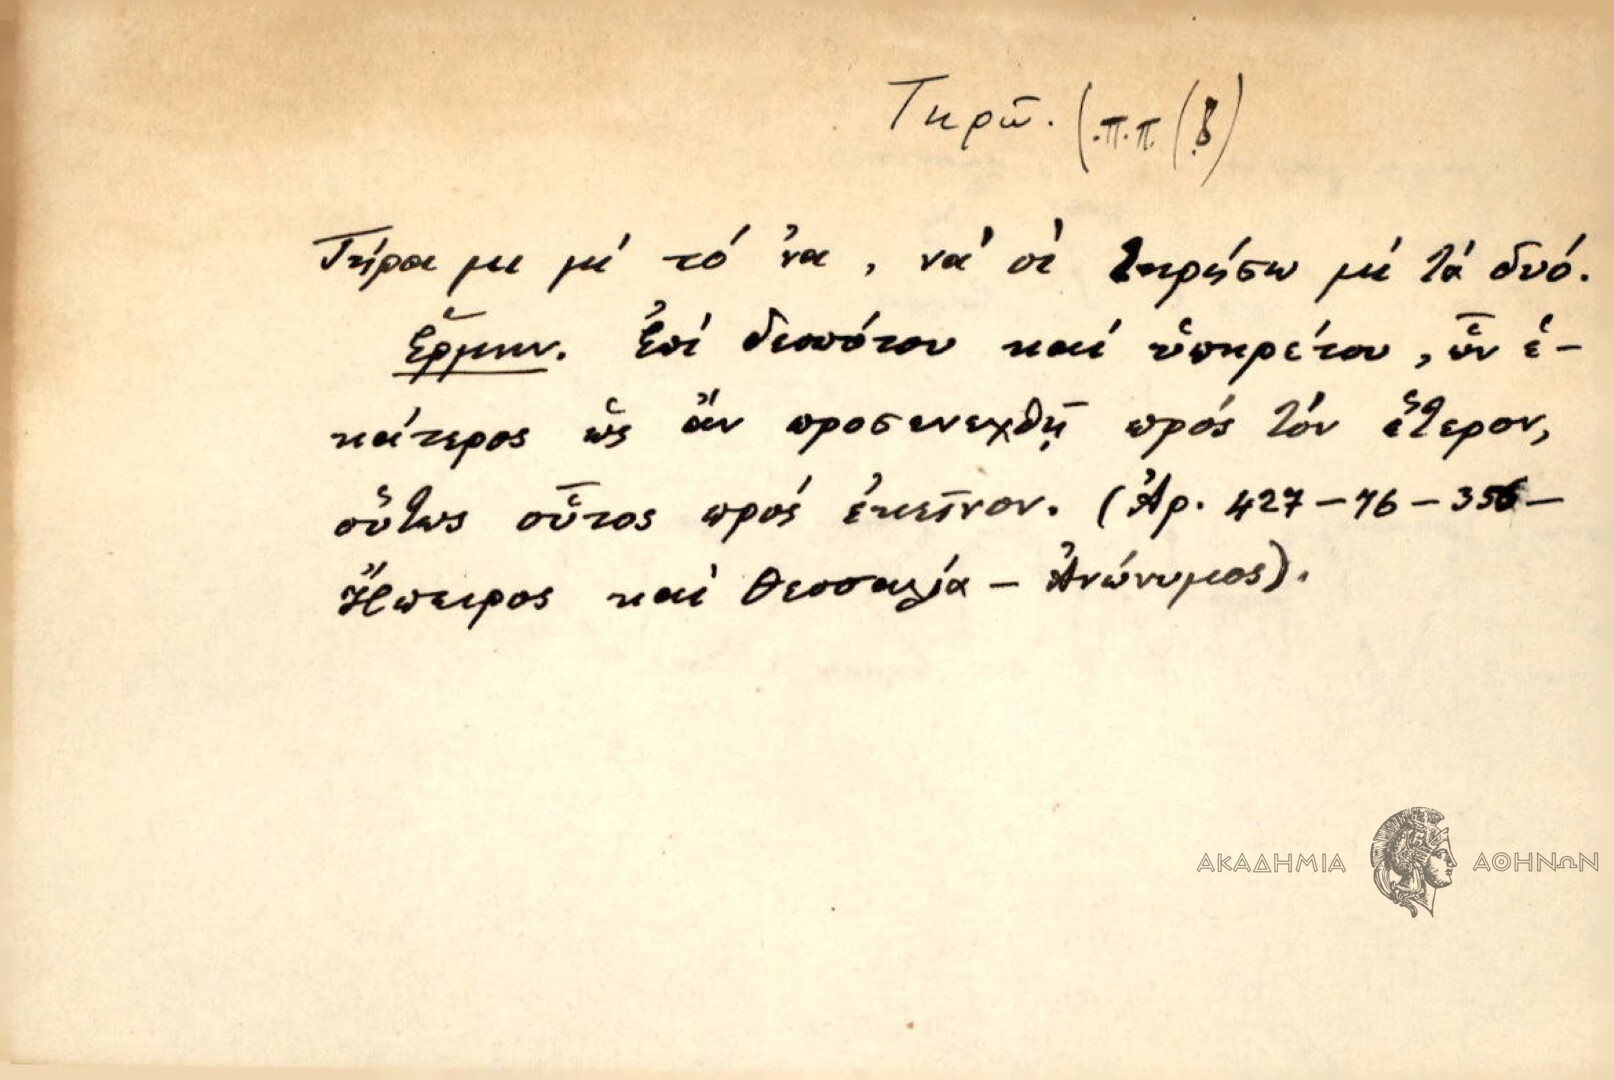 Τηρῶ. (.π.π (β)
Τήρα με μέ τό ἕνα, νά σέ τηρήσω μέ τά δυό.
Ἑρμην. Ἐπί δεσπότου καί ὑπηρέτου, ὧν ἑ-
κάτερος ὡς ἄν προσενεχθῇ πρός τόν ἕτερον,
οὕτως οὗτος πρός ἐκεῖνον. (Ἀρ. 427-76-356-
Ἤπειρος καί Θεσσαλία - Ἀνώνυμος).
ΑΚΑΔΗΜΙΑ ΑΘΗΝΩΝ